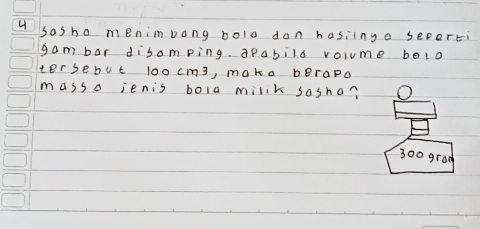 4 sasha menimbang bola dan hasilnya seperti
gambar disamping. apabila volume bola
tersebut 100 cm3, maka berapa
massa jenis bola milik sasha?
300 gram